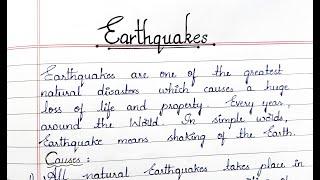 Earthquakes
Earthquakes are one of the greatest
natural disasters which causes a huge
loss of life and property. Every year,
around the World. In simple words,
Earthquake means shaking of the Earth.
Causes :
1) All natural Earthquakes takes place in